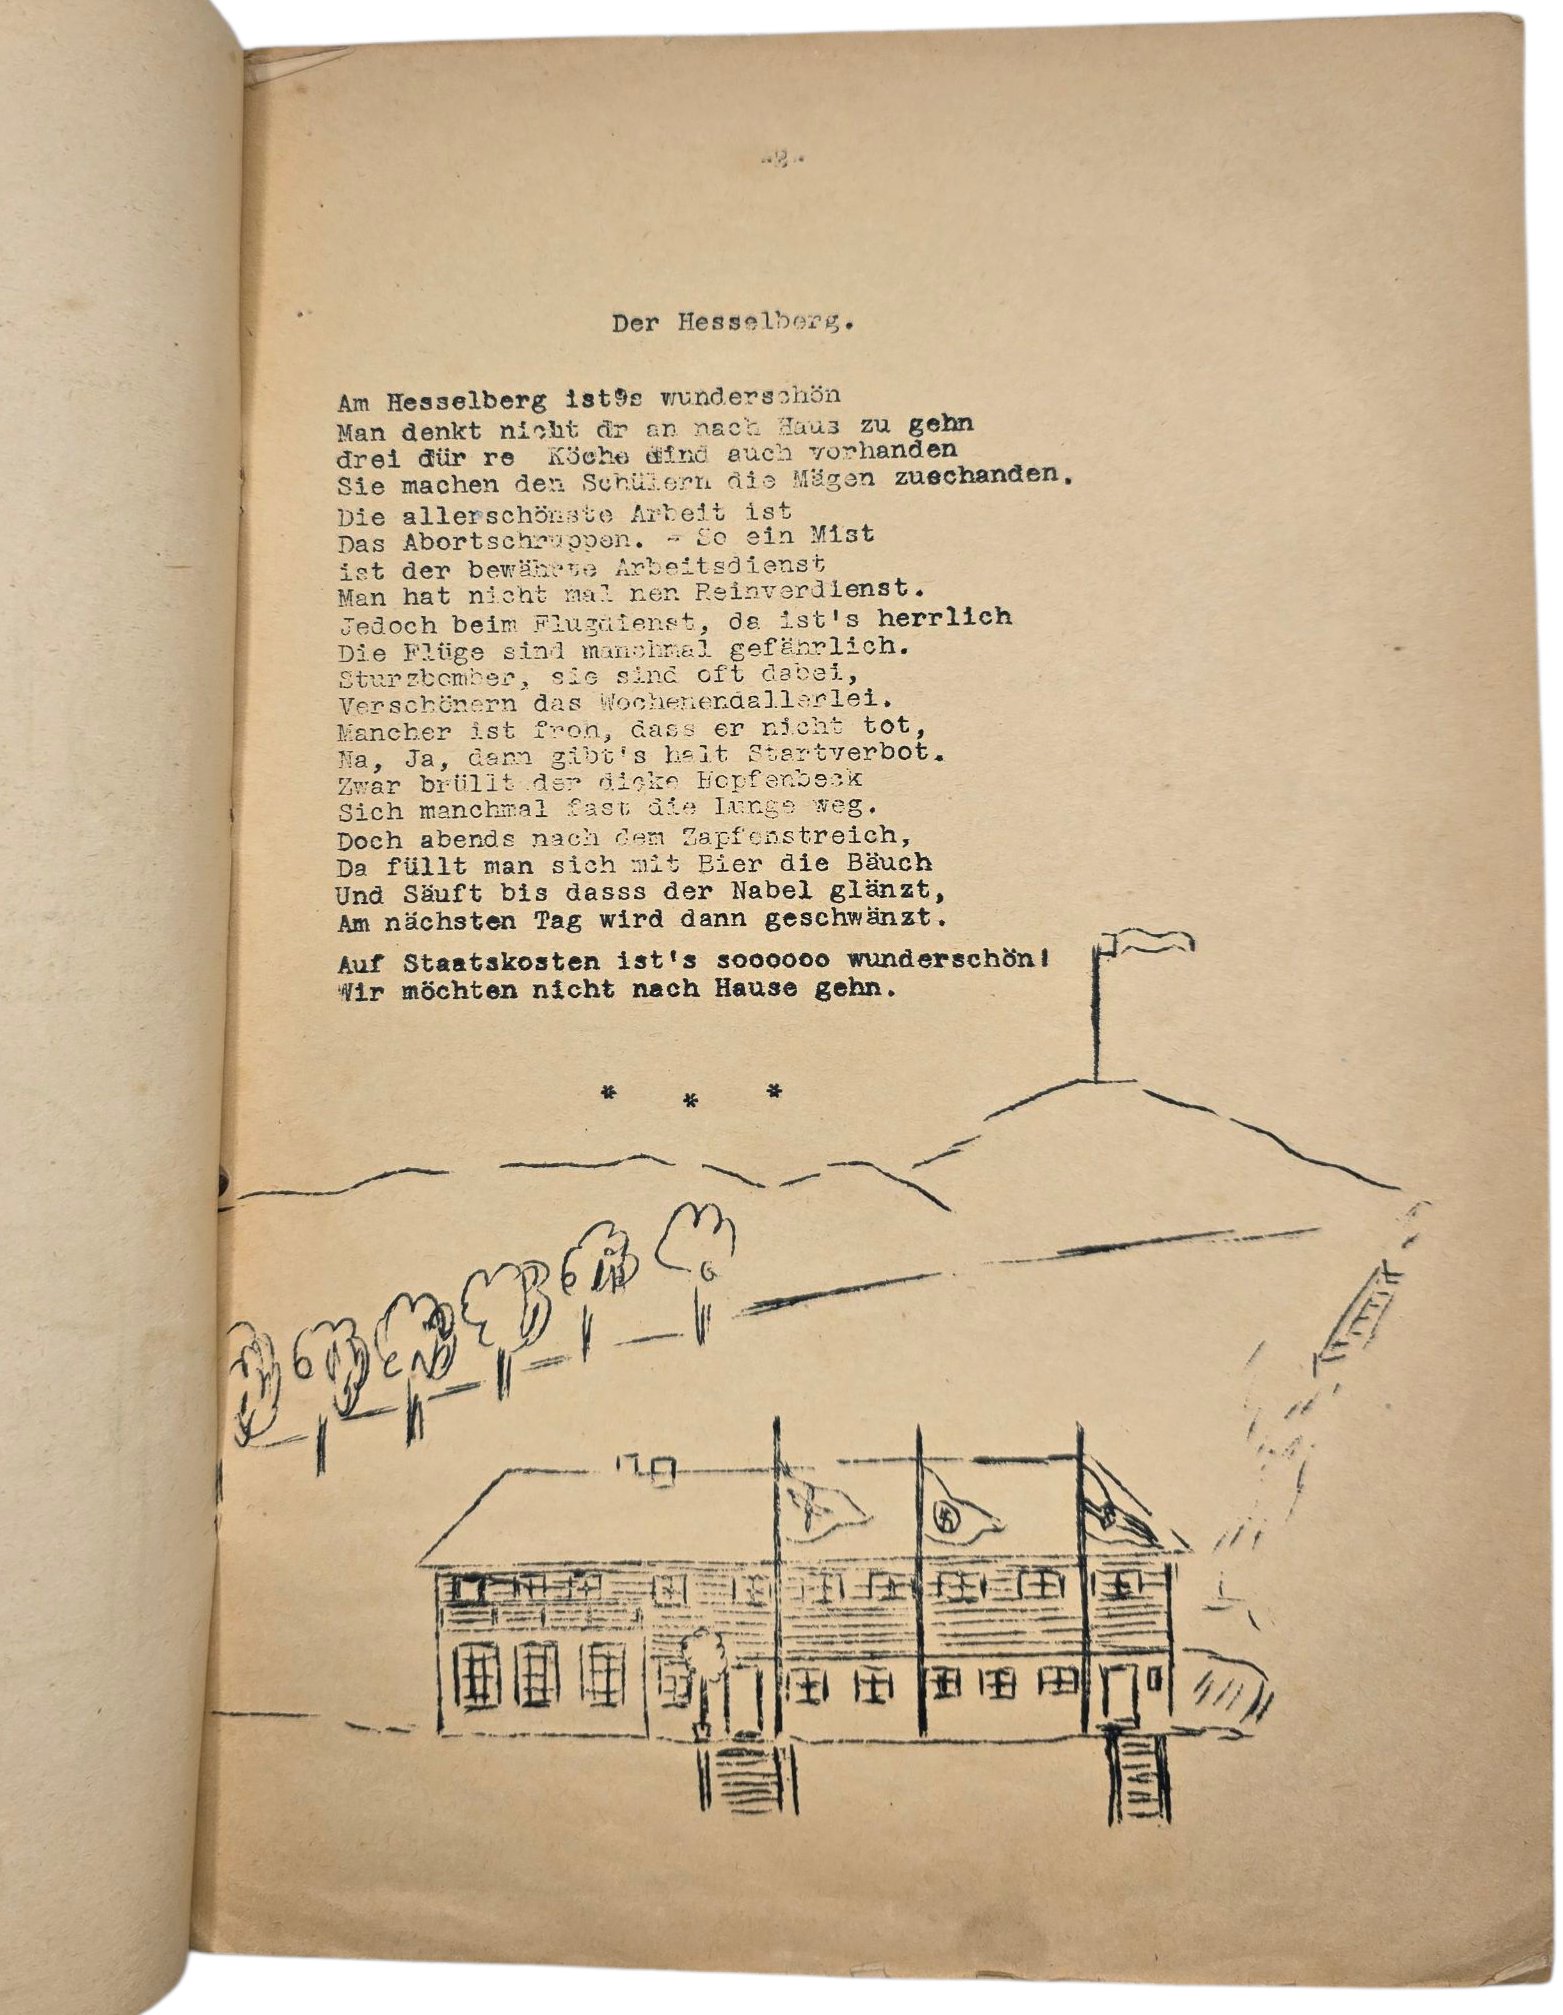 -8-
Der Hesselberg.
Am Hesselberg ist9s wunderschön
Man denkt nicht dr an nach Haus zu gehn
drei dür re Köche sind auch vorhanden
Sie machen den Schülern die Mägen zuschanden.
Die allerschönste Arbeit ist
Das Abortschruppen. - So ein Mist
ist der bewährte Arbeitsdienst
Man hat nicht mal nen Reinverdienst.
Jedoch beim Flugdienst, da ist's herrlich
Die Flüge sind manchmal gefährlich.
Sturzbomber, sie sind oft dabei,
Verschönern das Wochenendallerlei.
Mancher ist froh, dass er nicht tot,
Na, Ja, dann gibt's halt Startverbot.
Zwar brüllt der dicke Hopfenbeck
Sich manchmal fast die Lunge weg.
Doch abends nach dem Zapfenstreich,
Da füllt man sich mit Bier die Bäuch
Und Säuft bis dasss der Nabel glänzt,
Am nächsten Tag wird dann geschwänzt.
Auf Staatskosten ist's soooooo wunderschön!
Wir möchten nicht nach Hause gehn.
* * *